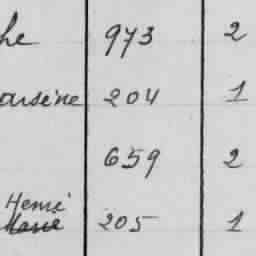 he 973 2
arsène 204 1
659 2
Henri
Marie 205 1